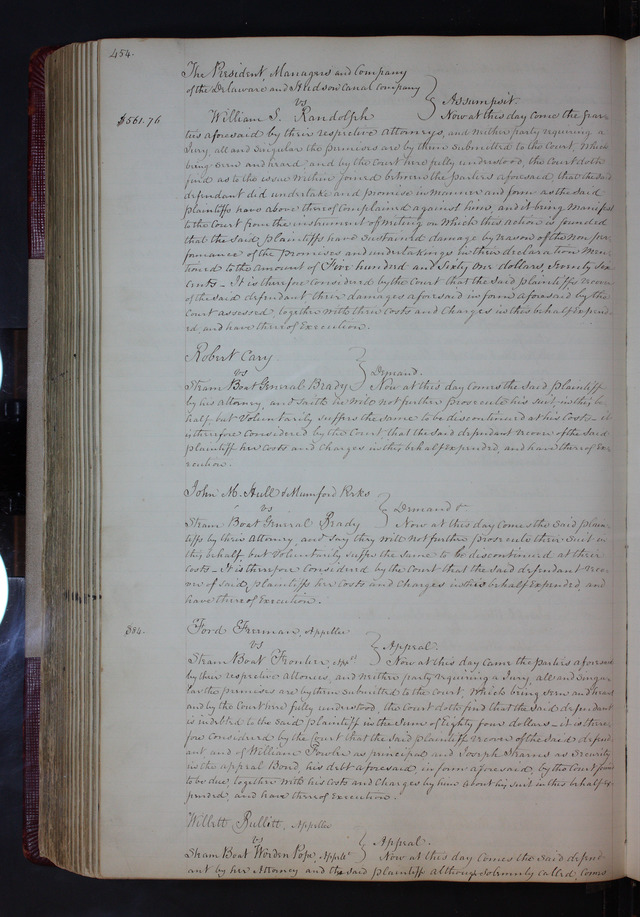 454.
The President, Managers and Company
of the Delaware and Hudson Canal Company
vs } Assumpsit.
$561.76 William S. Randolph Now at this day come the par-
ties aforesaid by their respective attorneys, and neither party requiring a
Jury all and singular the premises are by them submitted to the Court, Which
being seen and heard, and by the Court here fully understood, the Court doth
find as to the issue within joined between the parties aforesaid, that the said
defendant did undertake and promise in manner and form as the said
plaintiffs have above thereof complained against him, and it being manifest
to the Court from the instrument of writing on which this action is founded
that the said plaintiffs have sustained damage by reason of the non per-
formance of the promises and undertakings in their declaration men
tioned to the amount of Five hundred and Sixty One dollars, Seventy Six
Cents – It is therefore considered by the Court that the said plaintiffs recover
of the said defendant their damages aforesaid in form aforesaid by the
Court assessed, together with their costs and Charges in this behalf expend-
ed, and have thereof Execution.
Robert Cary
vs } Demand.
Steam Boat General Brady Now at this day comes the said plaintiff
by his attorney, and saith he will not further prosecute his suit in this be
half, but Voluntarily suffers the same to be discontinued at his Costs – it
is therefore Considered by the Court, that the said defendant recover of the said
plaintiff her Costs and Charges in this behalf expended, and have thereof Ex-
ecution.
John M. Hull & Mumford
vs } Demand
Steam Boat General Brady Now at this day comes the said plain
tiffs by their Attorney, and say they will not further prosecute their Suit in
this behalf, but Voluntarily suffer the same to be discontinued at their
costs – It is therefore Considered by the Court that the said defendant recov
er of said plaintiffs her Costs and Charges in this behalf Expended, and
have thereof Execution.
$84. Ford Freeman, Appellee
vs } Appeal.
Steam Boat Frontier, Now at this day Came the parties aforesaid
by their respective attornies, and neither party requiring a Jury, all and singu
lar the premises are by them submitted to the Court, Which being seen and heard
and by the Court here fully understood, the Court doth find that the said defendant
is indebted to the said plaintiff in the Sum of Eighty four dollars – it is there
fore Considered by the Court that the said plaintiff recover of the said defend
ant, and of William Fowler as principal and Joseph as Security
in the appeal Bond, his debt aforesaid, in form aforesaid, by the Court found
to be due, together with his Costs and Charges by him about his suit in this behalf ex-
pended, and have thereof Execution.
Willett Bullitt, Appellee
vs } Appeal.
Steam Boat Worden Pope, Applt Now at this day Comes the said defend-
ant by her Attorney and the said plaintiff although solemnly called, Comes